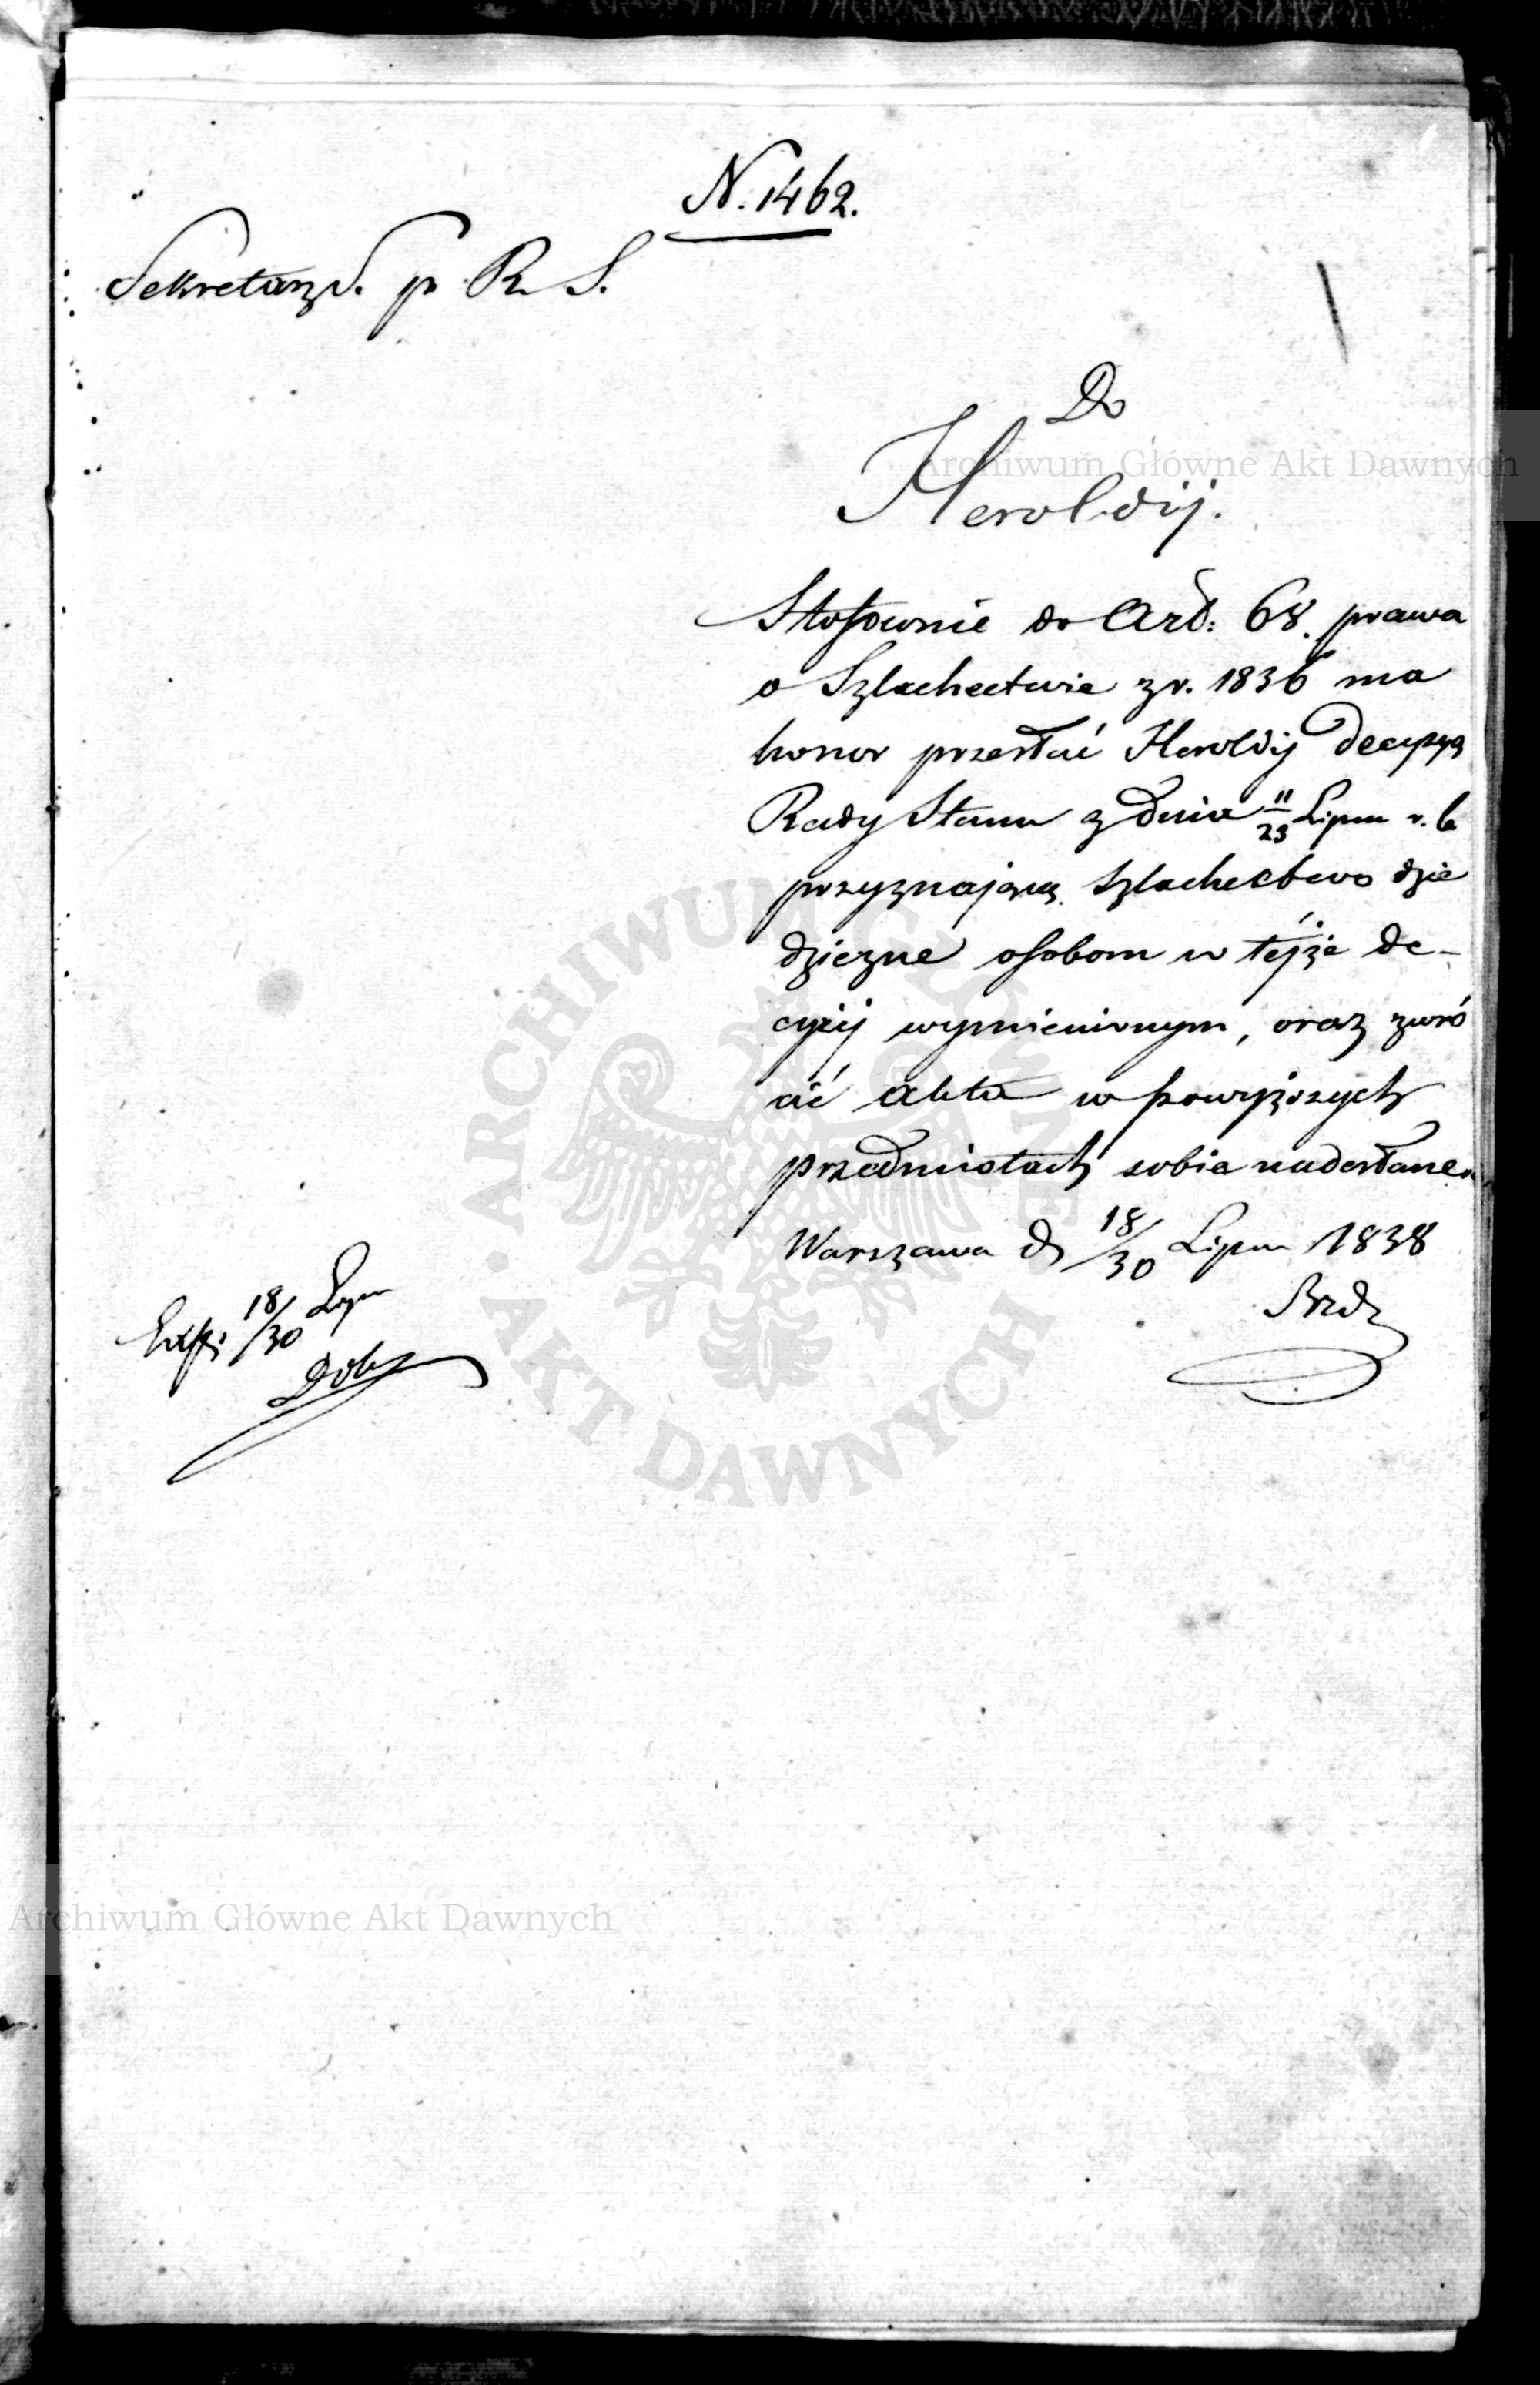 N. 1462.
Sekretarz S. p R S.
Do
Heroldij.
Stosownie do Art: 68. prawa
o Szlachectwie z r. 1836 ma
honor przesłać Heroldij Decyzyą
Rady Stanu z Dnia 11/23 Lipca r. b
przyznającą szlachectwo dzie
dziczne osobom w tejże de-
cyzij wymienionym, oraz zwró
cić akta w powyższych
przedmiotach sobie nadesłane.
Warszawa d 18/30 Lipca 1838
Exp: 18/30 Lipca
Archiwum Główne Akt Dawnych
ARCHIWUM GŁÓWNE AKT DAWNYCH
Archiwum Główne Akt Dawnych